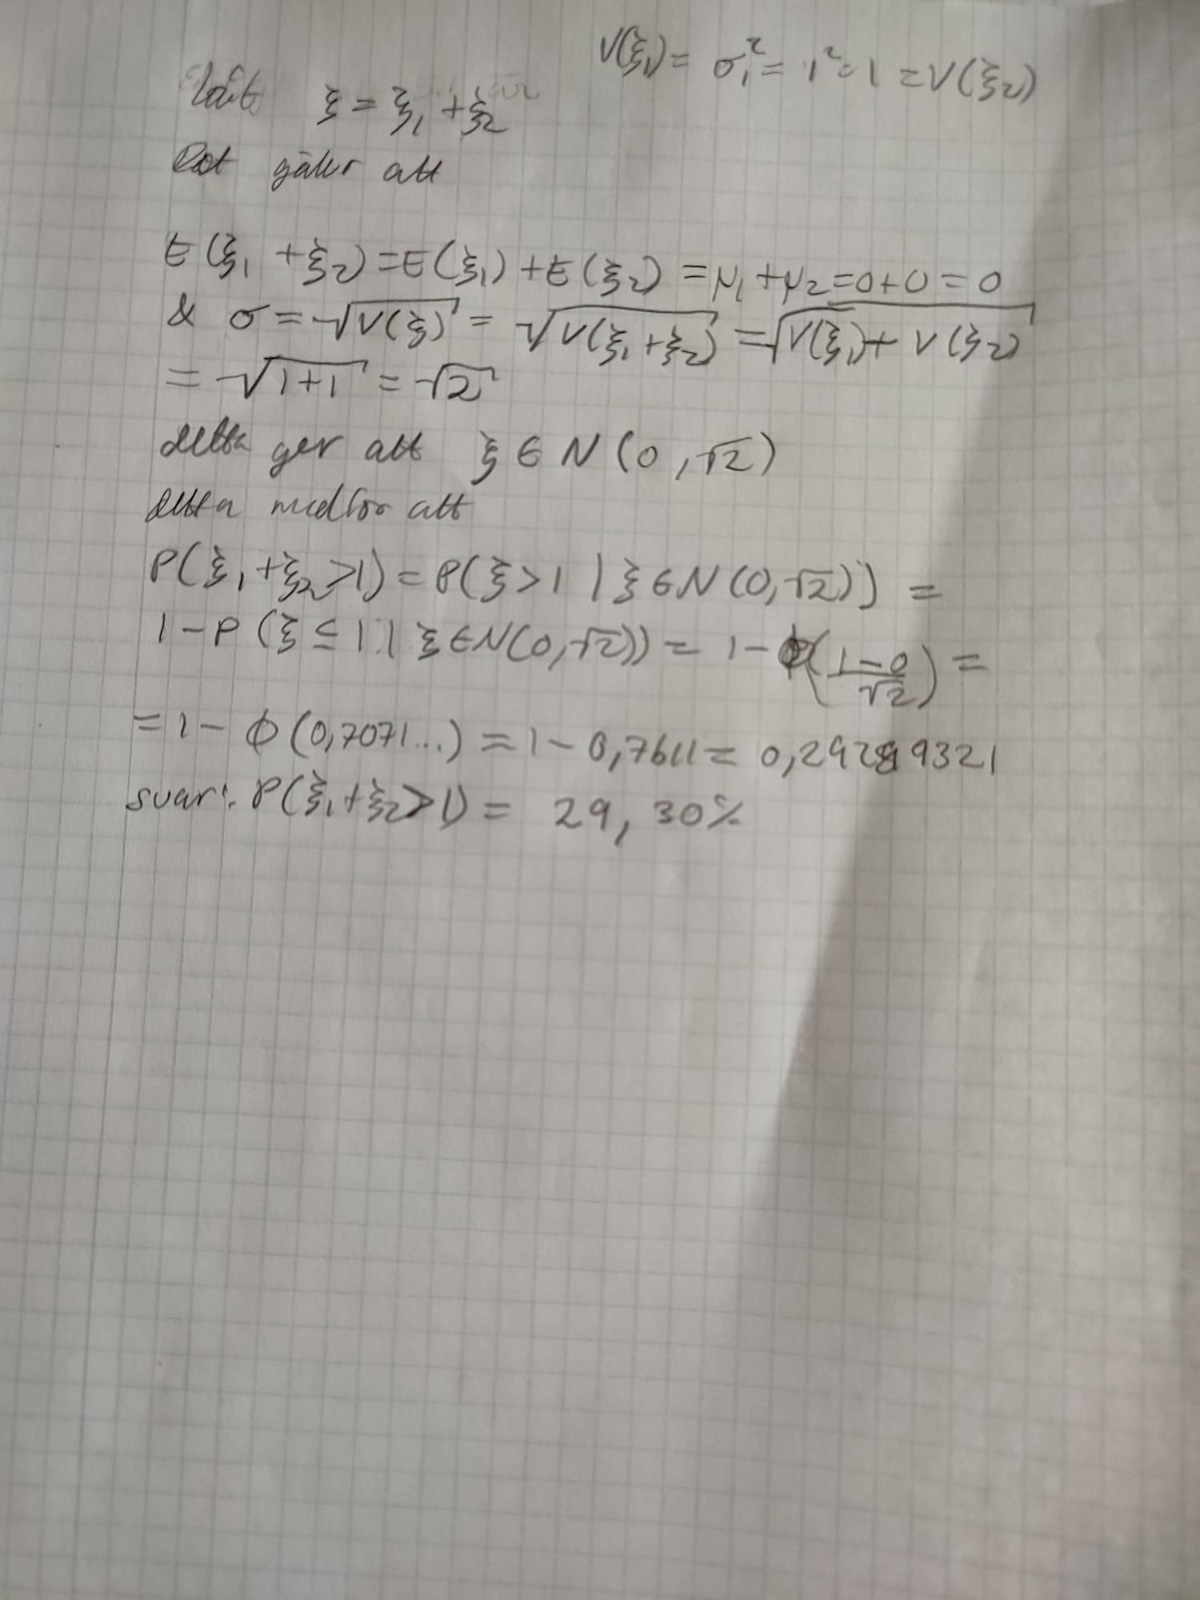 V(ξ₁) = σ₁² = 1² = 1 = V(ξ₂)
låt ξ = ξ₁ + ξ₂
Det gäller att
E(ξ₁ + ξ₂) = E(ξ₁) + E(ξ₂) = μ₁ + μ₂ = 0 + 0 = 0
& σ = √V(ξ) = √V(ξ₁ + ξ₂) = √V(ξ₁) + V(ξ₂)
= √1+1 = √2
detta ger att ξ ∈ N(0, √2)
detta medför att
P(ξ₁ + ξ₂ > 1) = P(ξ > 1 | ξ ∈ N(0, √2)) =
1 - P(ξ ≤ 1 | ξ ∈ N(0, √2)) = 1 - Φ((1-0)/√2) =
= 1 - Φ(0,7071...) = 1 - 0,7611 = 0,29289321
svar: P(ξ₁ + ξ₂ > 1) = 29,30%